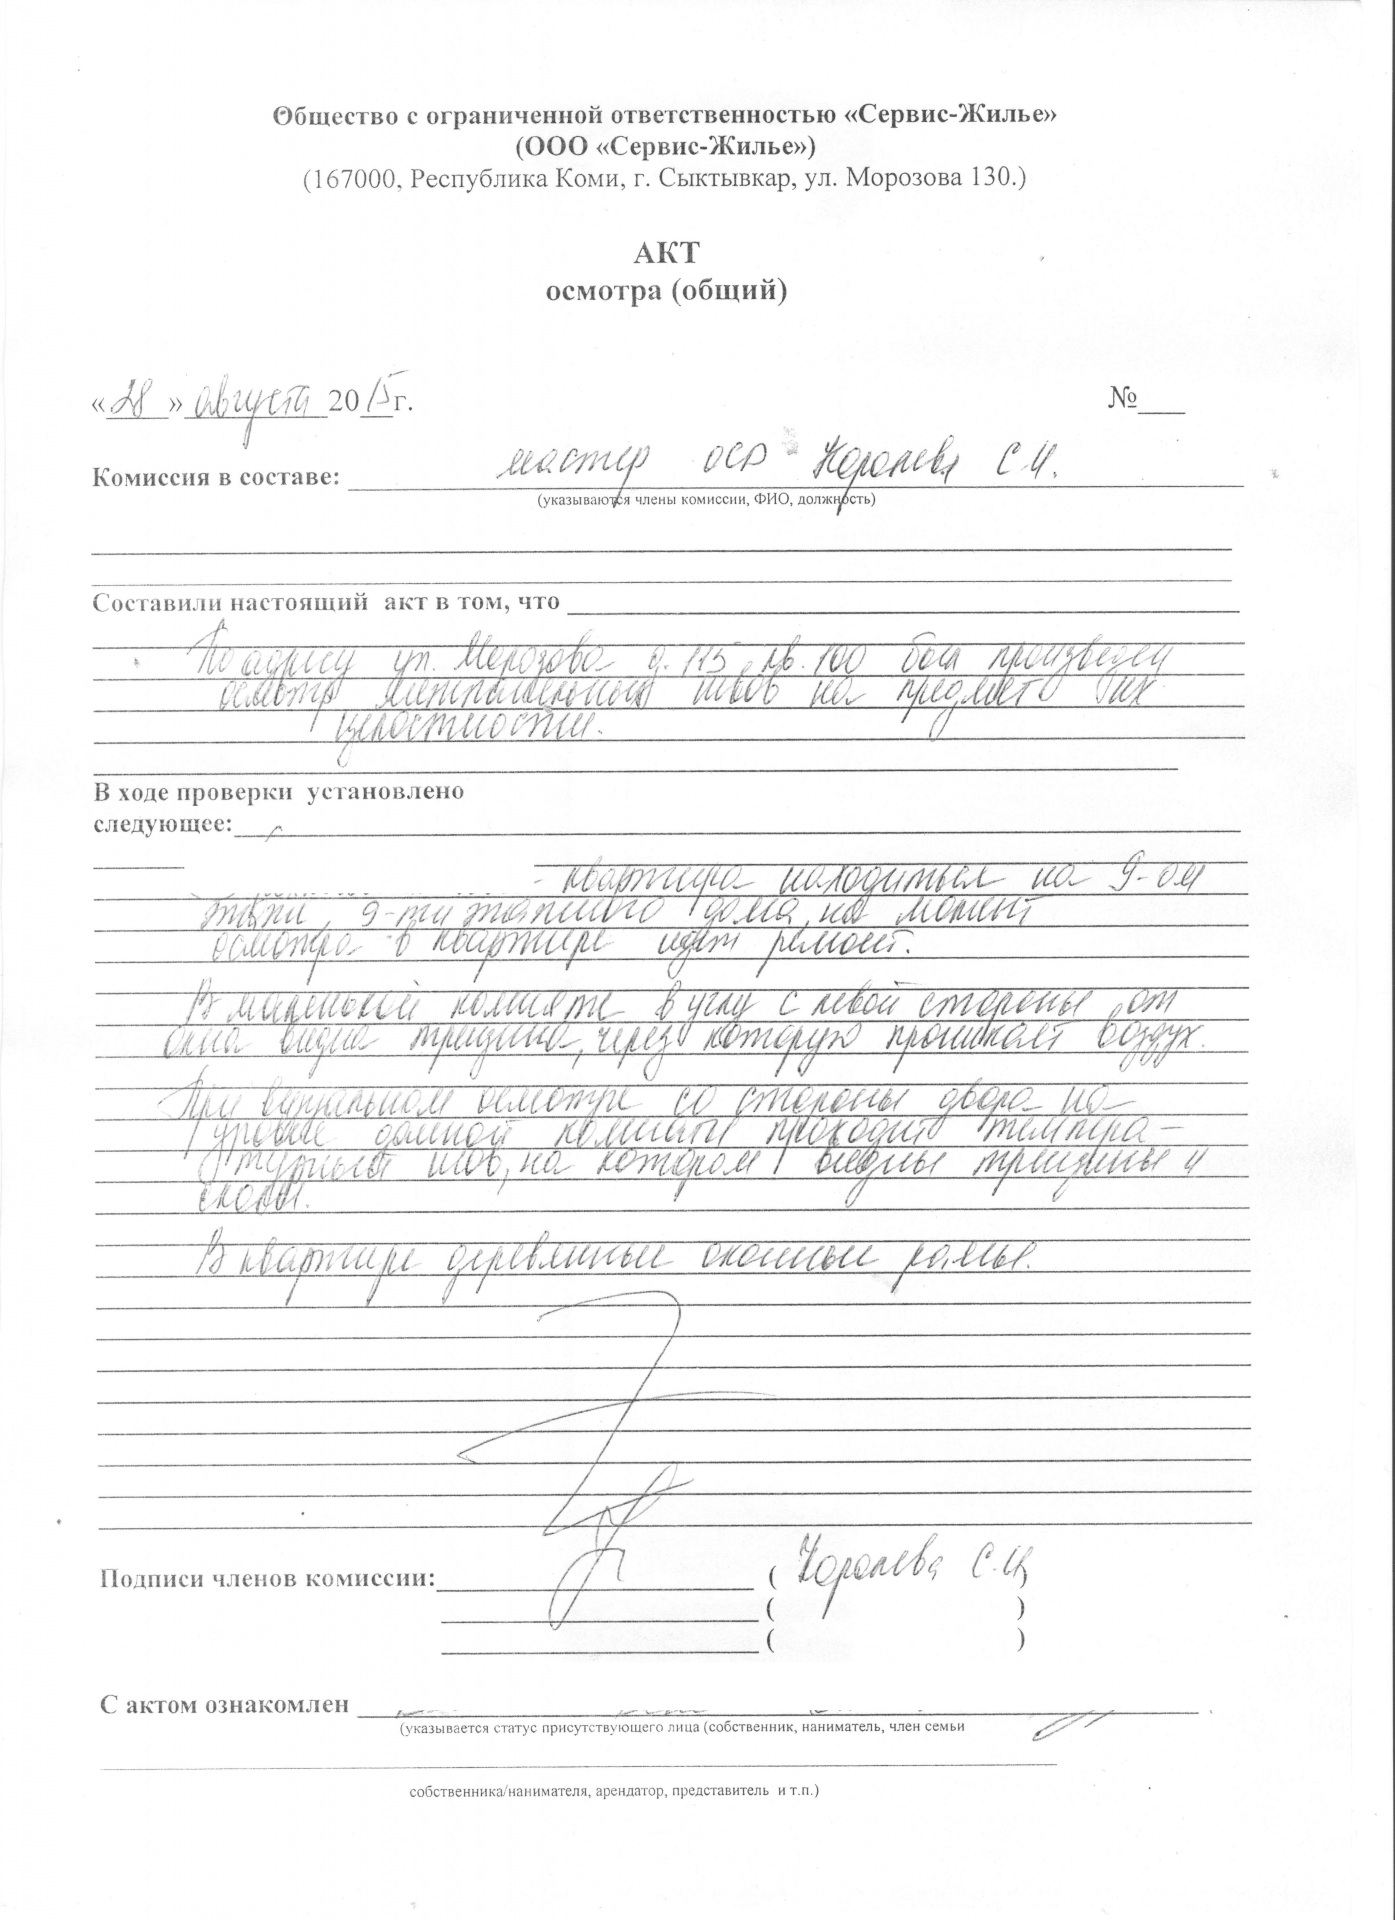 Общество с ограниченной ответственностью «Сервис-Жилье»
(ООО «Сервис-Жилье»)
(167000, Республика Коми, г. Сыктывкар, ул. Морозова 130.)
АКТ
осмотра (общий)
«28» августа 2015г. №___
Комиссия в составе: мастер ОСР Королева С.И.
(указываются члены комиссии, ФИО, должность)
Составили настоящий акт в том, что
По адресу ул. Морозова д. 115 кв. 100 был произведен
осмотр межпанельных швов на предмет их
целостности.
В ходе проверки установлено
следующее:
- квартира находиться на 9-ом
этаже, 9-ти этажного дома, на момент
осмотра в квартире идет ремонт.
В маленькой комнате в углу с левой стороны от
окна видна трещина, через которую проникает воздух.
При визуальном осмотре со стороны двора на
уровне данной комнаты проходит темпера-
турный шов, на котором видны трещины и
сколы.
В квартире деревянные оконные рамы.
Подписи членов комиссии: ( Королева С.И)
( )
( )
С актом ознакомлен
(указывается статус присутствующего лица (собственник, наниматель, член семьи
собственника/нанимателя, арендатор, представитель и т.п.)